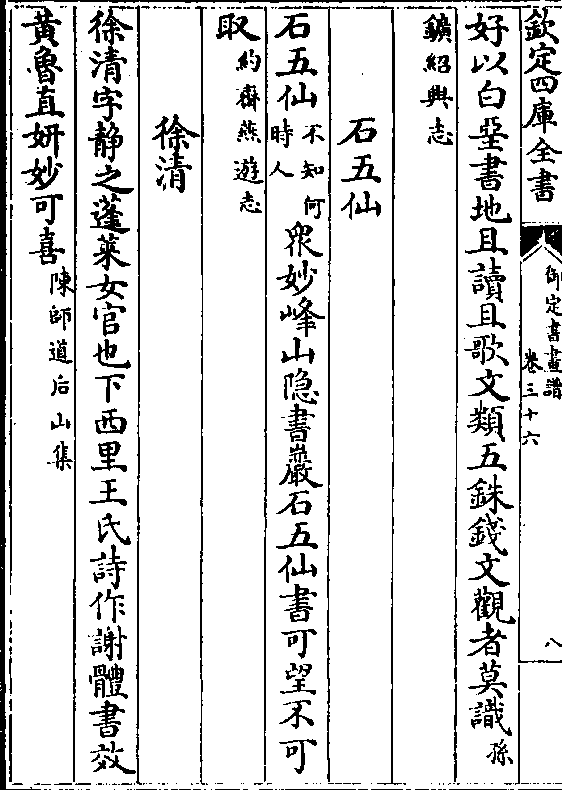 欽定四庫全書
御定書畫譜
卷三十六
八
好以白堊書地且讀且歌文類五銖錢文觀者莫識孫
鑛紹興志
石五仙
石五仙不知何時人眾妙峰山隱書巖石五仙書可望不可
取約齋燕遊志
徐清
徐清字靜之蓬萊女官也下西里王氏詩作謝體書效
黃魯直妍妙可喜陳師道后山集